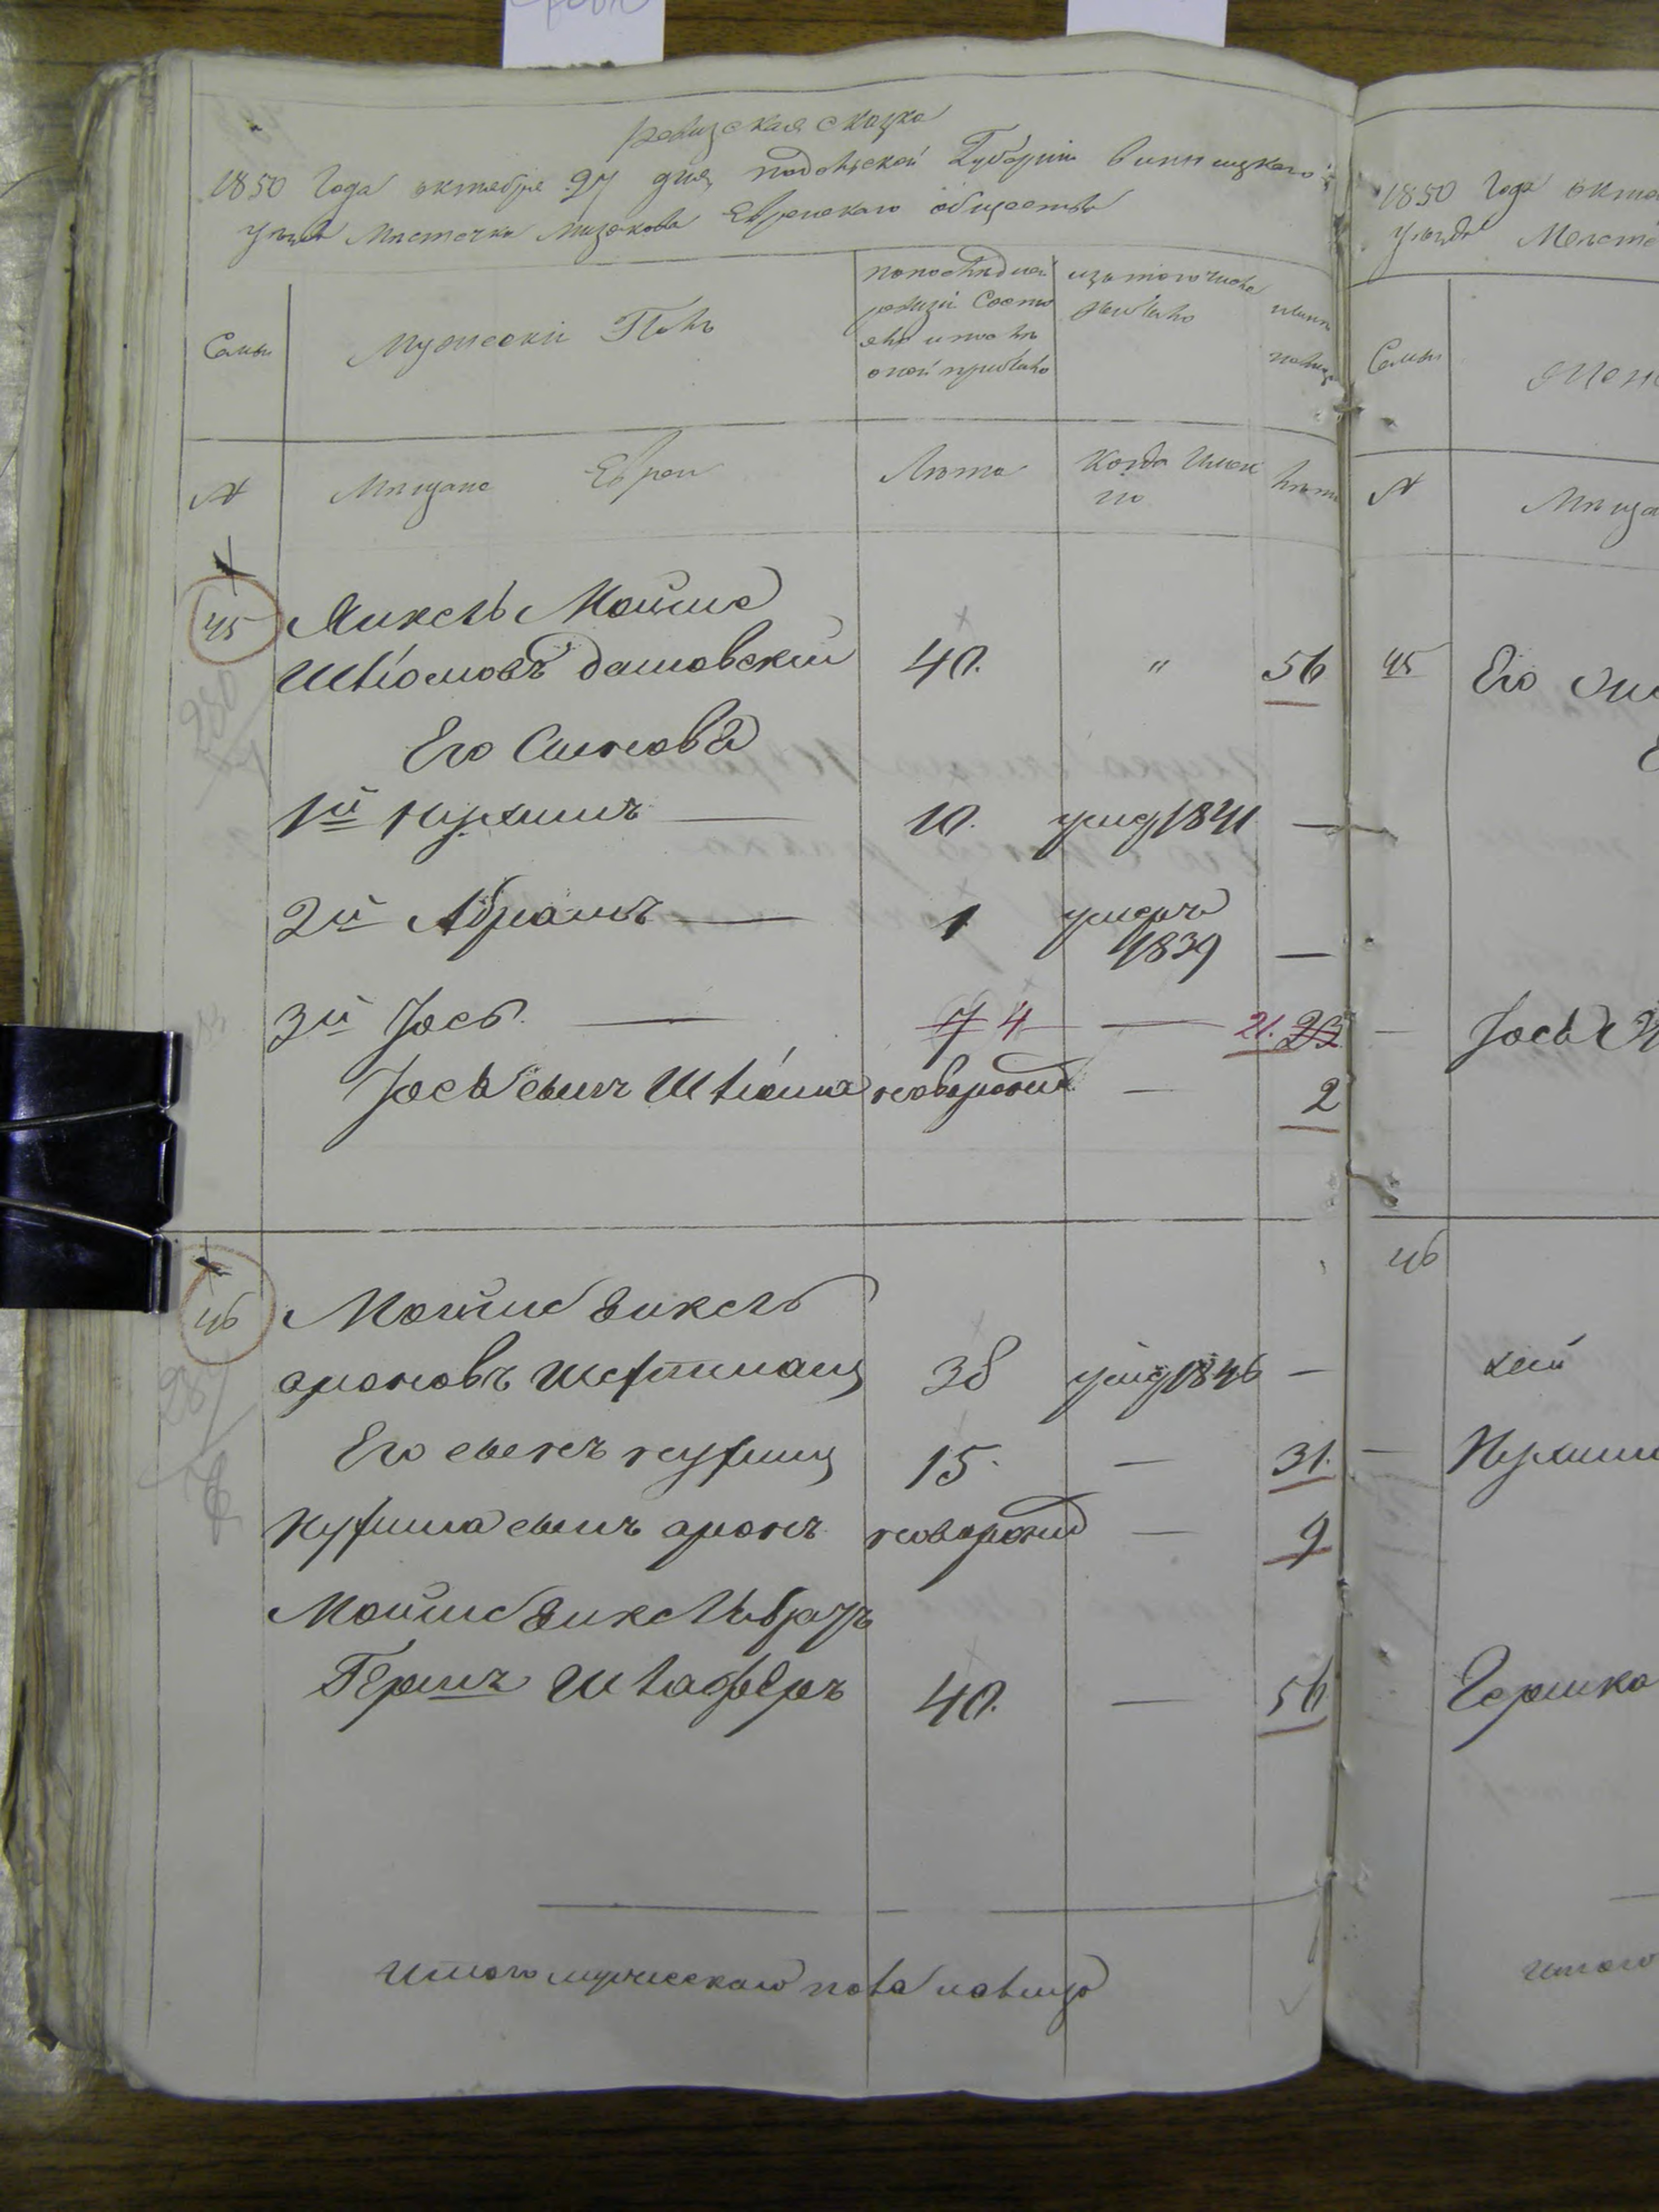 ревизская сказка
1850 Года октября 27 дня подольской Губернии винницкаго
уезда Местечка Мизякова Еврейскаго общества
Семьи
Мужески Полъ
по последней ревизи Состояло и после оной прибыло
изъ того числа выбыло
ныне налицо
№
Мещане Евреи
Лета
Когда Именно
лета
45 Янкель Мойше
Шліомовъ дашовский 40. " 56
Его Сыновья
1й Нухимъ — 10. умер 1841 —
2й Абрамъ — 1 умеръ 1839 —
3й Іось — 7 4 — 21. 23
Іося сынъ Шліома новорожд — 2
46 Мойше Янкель
ароновъ Шефтман 38 умер 1846 —
Его сынъ нухим 15. — 31.
Нухима сынъ аронъ новорожд — 9
Мойше Янкеля братъ
Гершъ Шляферъ 40. — 56
Итого мужескаго пола налицо
1850 Года окт
уезда Месте
Семьи
Жен
№
Меща
45 Его
Іося
46
Нухим
Гершка
итого